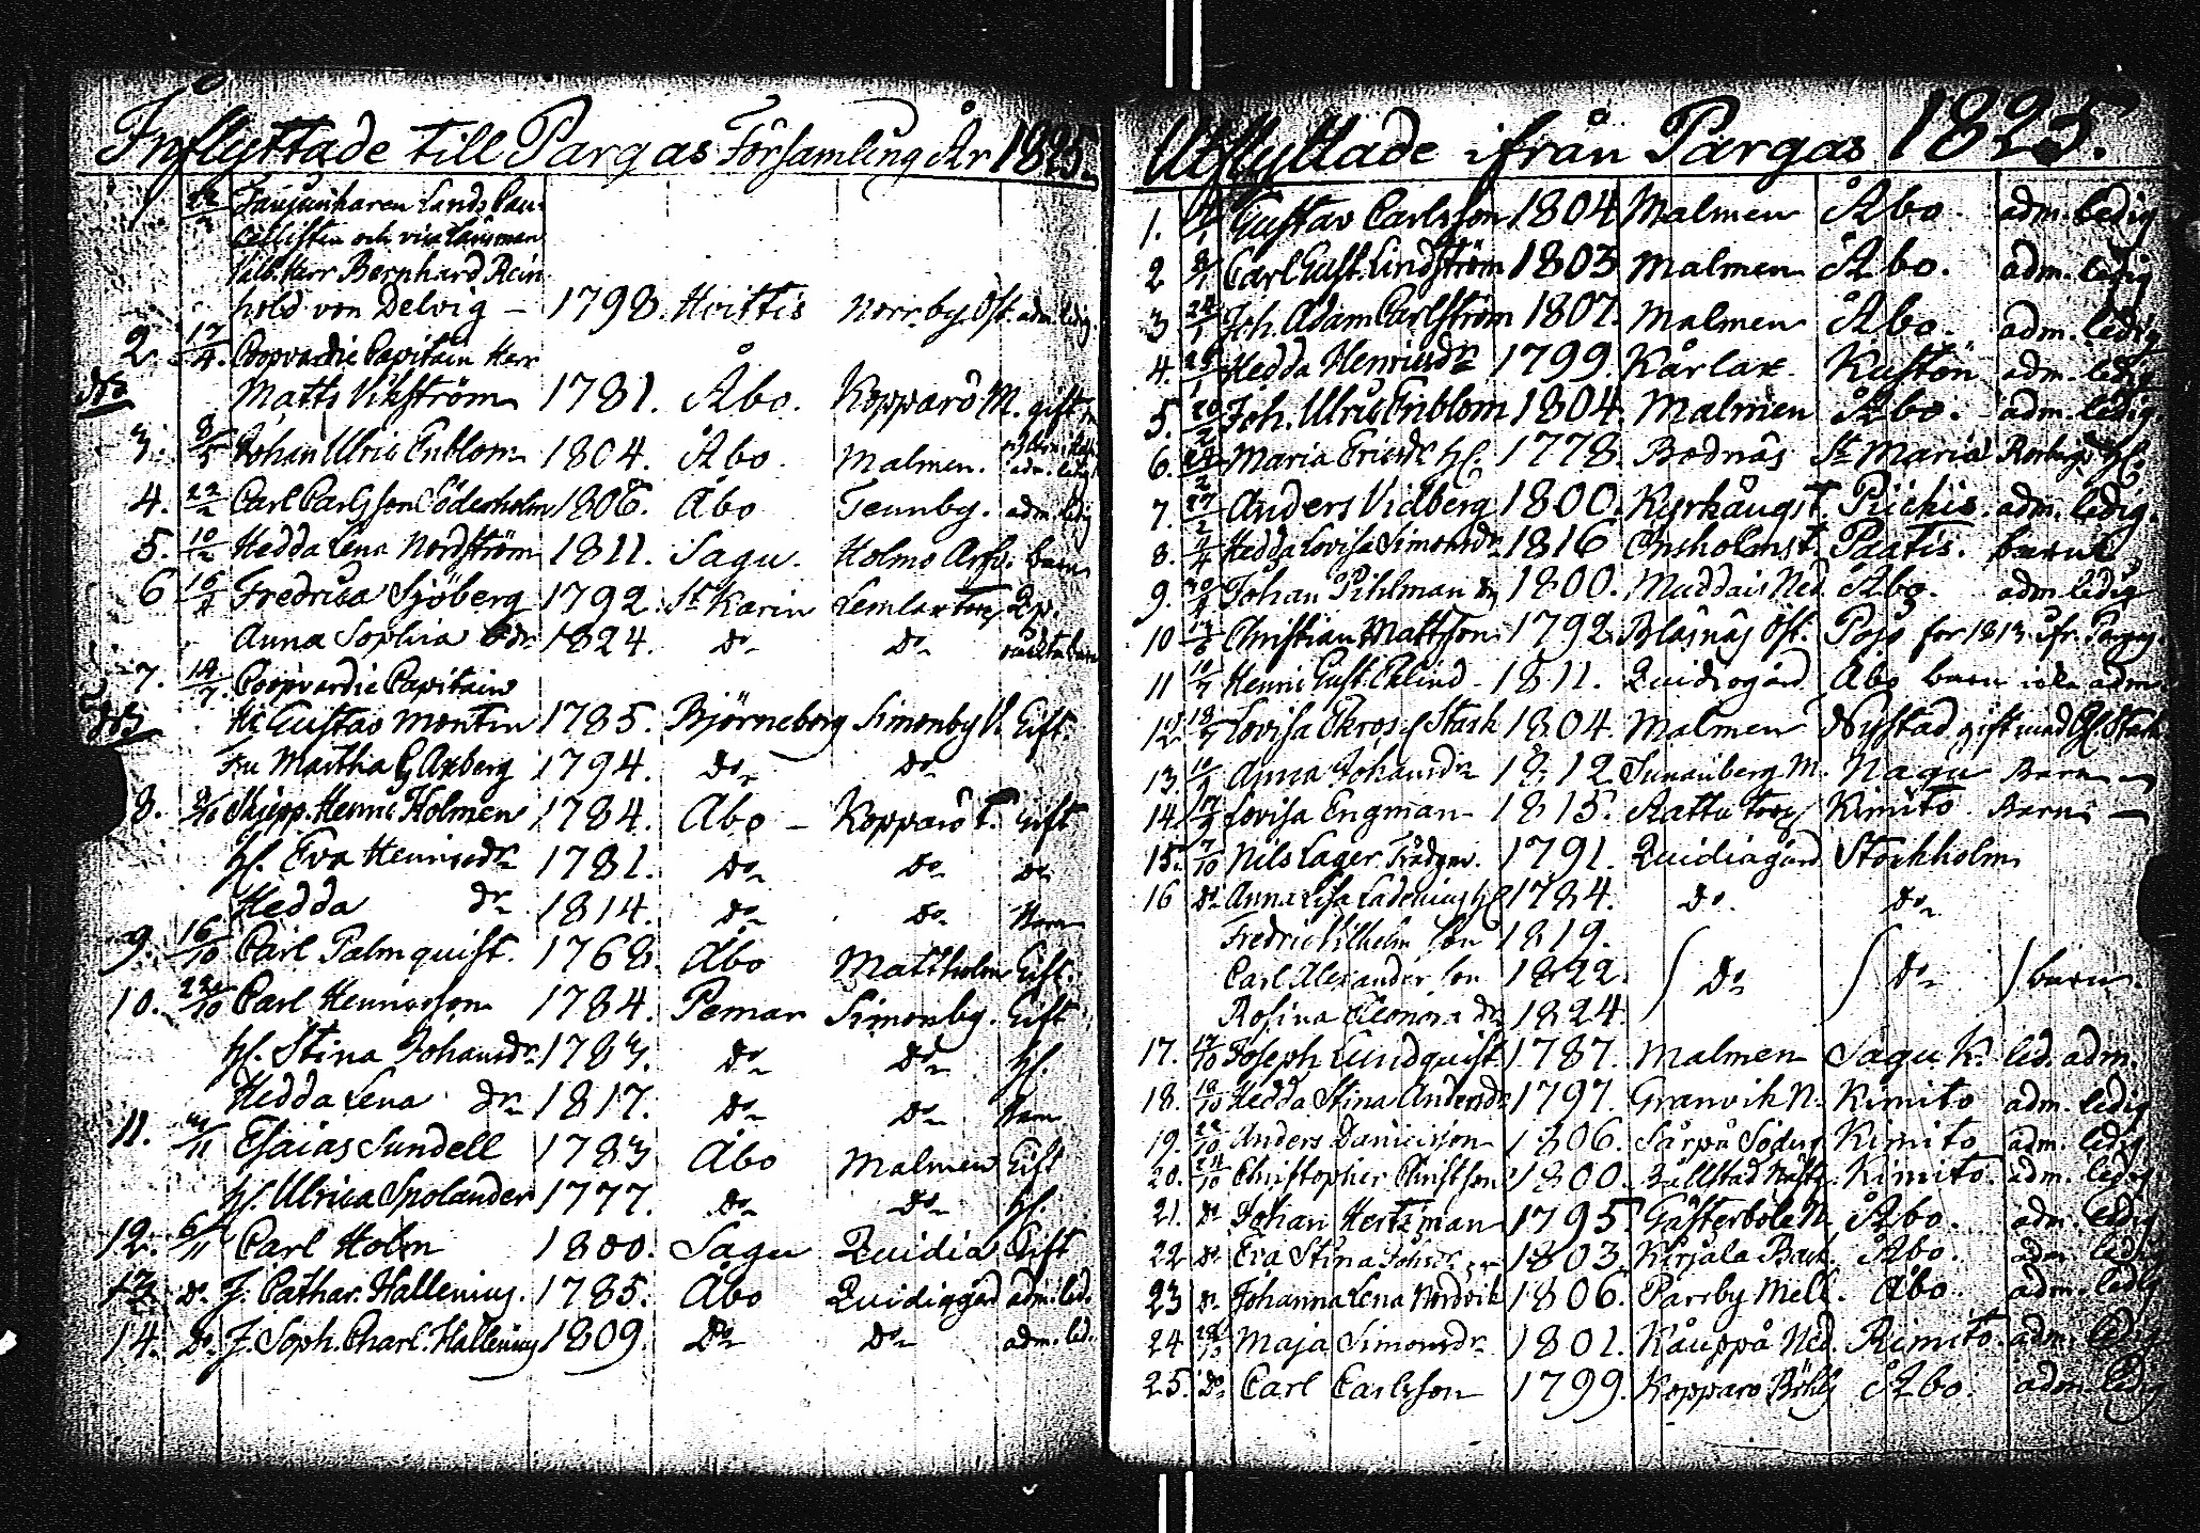 Inflyttade till Pargas Församling År 1825.
22 Fanjunkaren Lands Can-
cellisten och vice Länsman
Välb. Herr Bernhard Rein
hold von Delvig – 1798. Hvittis Norrby Öst. adm. ledig.
2. 17/4. Coopvardie Capitain Herr
Matts Vikström 1781. Åbo. Kopparö M. gift
3. 8/5 Johan Ulric Enblom 1804. Åbo. Malmen. adm. ledig
4. 22/2 Carl Carlsson Söderholm 1806. Åbo Tennby. adm. ledig
5. 10/2 Hedda Lena Nordström 1811. Sagu. Holmo barn
6 16/4 Fredrica Sjöberg 1792. St Karin Lemlax Torp Qp.
Anna Sophia dr 1824. do do oäckta barn
7. 14/7. Coopvardie Capitain
Hr Gustav Montin 1785. Björneborg Simonby V. Gift.
Fru Martha G Axberg 1794. do do
8. 9/10 Skepp. Henric Holmen 1784. Åbo – Kopparö T. Gift
H. Eva Henricsdr 1781. do do do
Hedda dr 1814. do do Barn
9. 16/10 Carl Palmquist. 1768. Åbo Mattholm Gift.
10. 22/10 Carl Henricsson 1784. Pemar Simonby. Gift
H. Stina Johansdr 1783. do do H.
Hedda Lena dr 1817. do do Barn
11. /11 Esaias Sundell 1783 Åbo Malmen Gift
H. Ulrica Spolander 1777. do do H.
12. 6/11 Carl Holm 1800. Sagu Quidia Gift
13 do J. Cathar. Hallenius. 1785. Åbo Quidiagård adm. led.
14. do J. Soph. Charl. Hallenius 1809. do do adm. led.
Utflyttade ifrån Pargas 1825.
1. Gustav Carlsson 1804 Malmen Åbo. adm. ledig
2 8/1 Carl Gust. Lindström 1803 Malmen Åbo. adm. ledig
3 22/1 Joh. Adam Carlström 1807. Malmen Åbo. adm. ledig
4. 28/1 Hedda Henricsdr 1799. Kårlax. Kustön adm. ledig
5. 20/2 Joh. Ulric Enblom 1804. Malmen Åbo. adm. ledig.
6. Maria Ericsdr H. 1778. Bodnäs St Maria H.
7. 27/2 Anders Vidberg 1800. Kyrkåugst. Piickis. adm. ledig.
8. /4 Hedda Lovisa Simonsdr 1816 Ersholmst. Paatis. barn
9. 30/4 Johan Pihlman 1800. Muddais Ned. Åbo. adm. ledig
10 Christian Mattsson 1792. Bläsnäs Öst. Pojo for 1813 ifr. Pargas.
11 10/7 Henric Gust. Eklind 1811. Quidiagård Åbo barn icke adm.
12. 18/7 Lovisa Ekros Stark 1804. Malmen Nystad gift med Stark
13. 10/ Anna Johansdr 1812 Sunnanberg M. Nagu Barn
14. Lovisa Engman 1815. Aattu torp Kimito. Barn
15. 7/10 Nils Lager Trädgm. 1791. Quidiagård Stockholm
16 do Anna Lisa Ladenius H 1784. do. do
Fredric Vilhelm son 1819.
Carl Alexander son 1822. do do barn.
Rosina Eleonora dr 1824
17. 17/10 Joseph Lundquist 1787. Malmen Sagu K. led. adm.
18. 19/10 Hedda Stina Andersdr 1797. Granvik N. Kimito adm. ledig
19. 22/10 Anders Danielsson 1806. Sårpå Söderg Kimito adm. ledig
20. 24/10 Christopher Christson 1800. Bållstad Kimito. adm. ledig.
21. do Johan Hertzman 1795. Gästerbole N. Åbo. adm. ledig
22 do Eva Stina Johsdr 1803. Kirjala Back. Åbo. adm. ledig
23 do Johanna Lena Nordvik 1806. Parsby Mell. Åbo. adm. ledig
24 28/10 Maja Simonsdr 1801. Kåuppå Ned. Kimito. adm. ledig
25. do Carl Carlsson 1799. Kopparö Böhls Åbo. adm. ledig